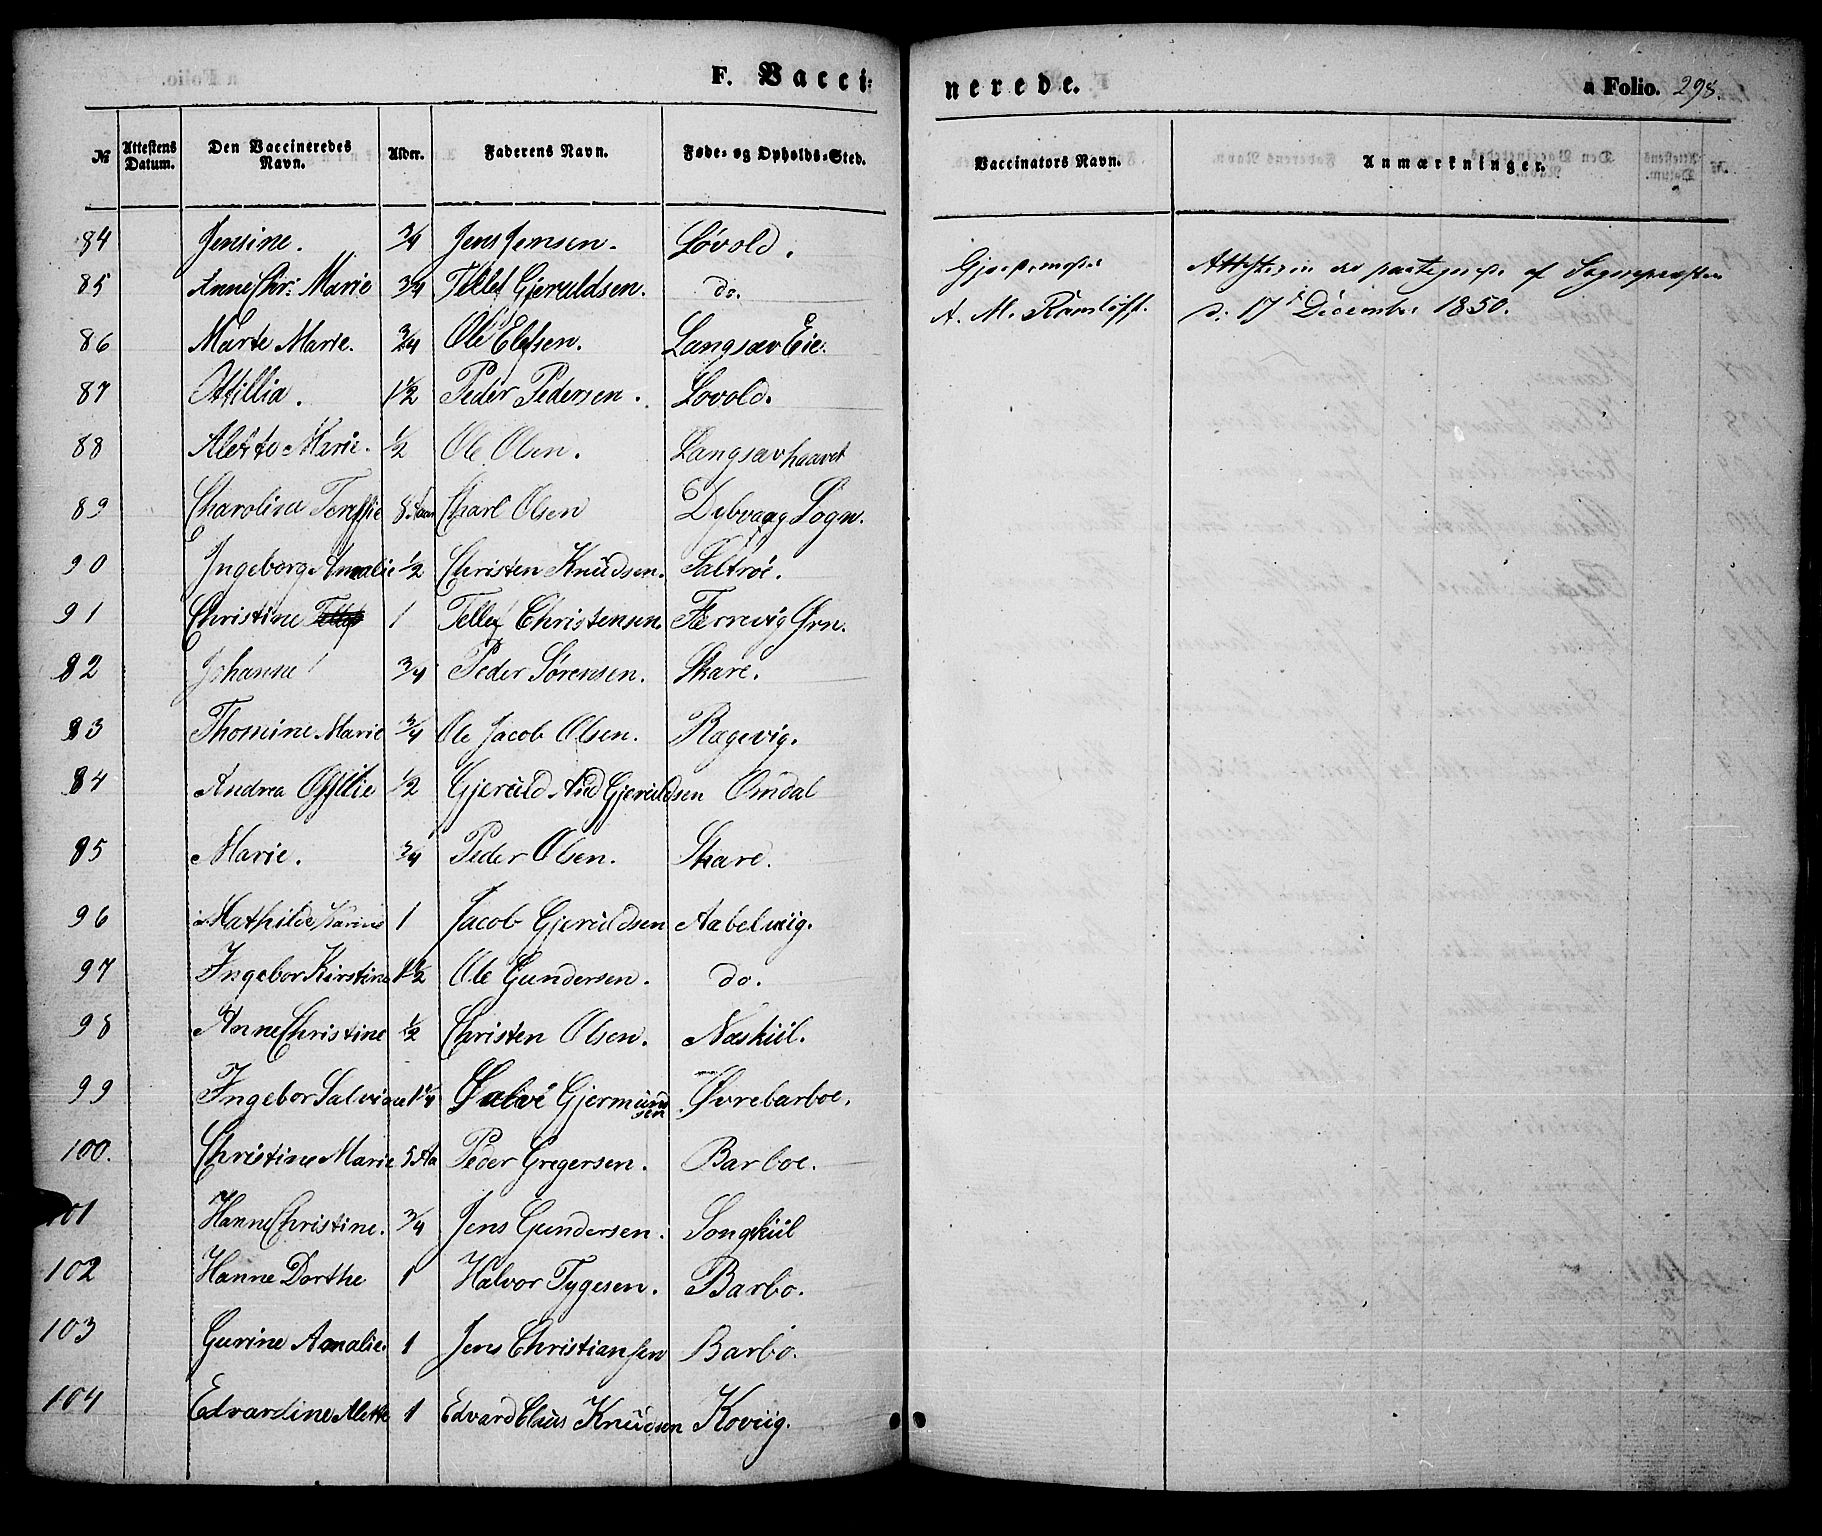 F. Vacci-
nerede.
a Folio. 298.
№ Attestens Datum. Den Vaccineredes Navn. Alder. Faderens Navn. Føde- og Opholds-Sted. Vaccinators Navn. Anmærkninger.
84 Jensine. 3/4 Jens Jensen. Løvold.
85 Anne Chr: Marie 3/4 Tellef Gjeruldsen. do.
86 Marte Marie. 3/4 Ole Elefsen. Langsæv Eie.
87 Attillia. 1 1/2 Peder Pedersen. Lovold.
88 Marie. 1/2 Ole Olsen. Langsævhaavet
89 Charolina 8 Aar Charl Olsen Dybvaag Sogn.
90 Ingeborg Amalie 1/2 Christen Knudsen. Saltrøe.
91 Christine 1 Tellef Christensen. Færrevig Grn.
82 Johanne 3/4 Peder Sørensen. Skare.
83 Thomine Marie 3/4 Ole Jacob Olsen. Ragevig.
84 Andrea 1/2 Gjeruld And Gjeruldsen Omdal
85 Marie. 3/4 Peder Olsen. Skare.
96 Mathilde Karine 1 Jacob Gjeruldsen Aabelviig.
97 Ingebor Kirstine 1 1/2 Ole Gundersen. do.
98 Anne Christine 1/2 Christen Olsen. Næskiil.
99 Ingebor Salviane 1 1/4 Salve Gjermundsen Øvrebarboe.
100. Christine Marie 5 Aa Peder Gregersen. Barboe.
101 Hanne Christine. 3/4 Jens Gundersen. Songkiil
102 Hanne Dorthe 1 Halvor Tygesen. Barbo.
103 Gurine Amalie. 1 Jens Christiansen Barbo.
104 Edvardine Alette 1 Edvard Claus Knudsen Koviig.
A. M. Ramløfft.
af Sognepresten
d: 17 December 1850.